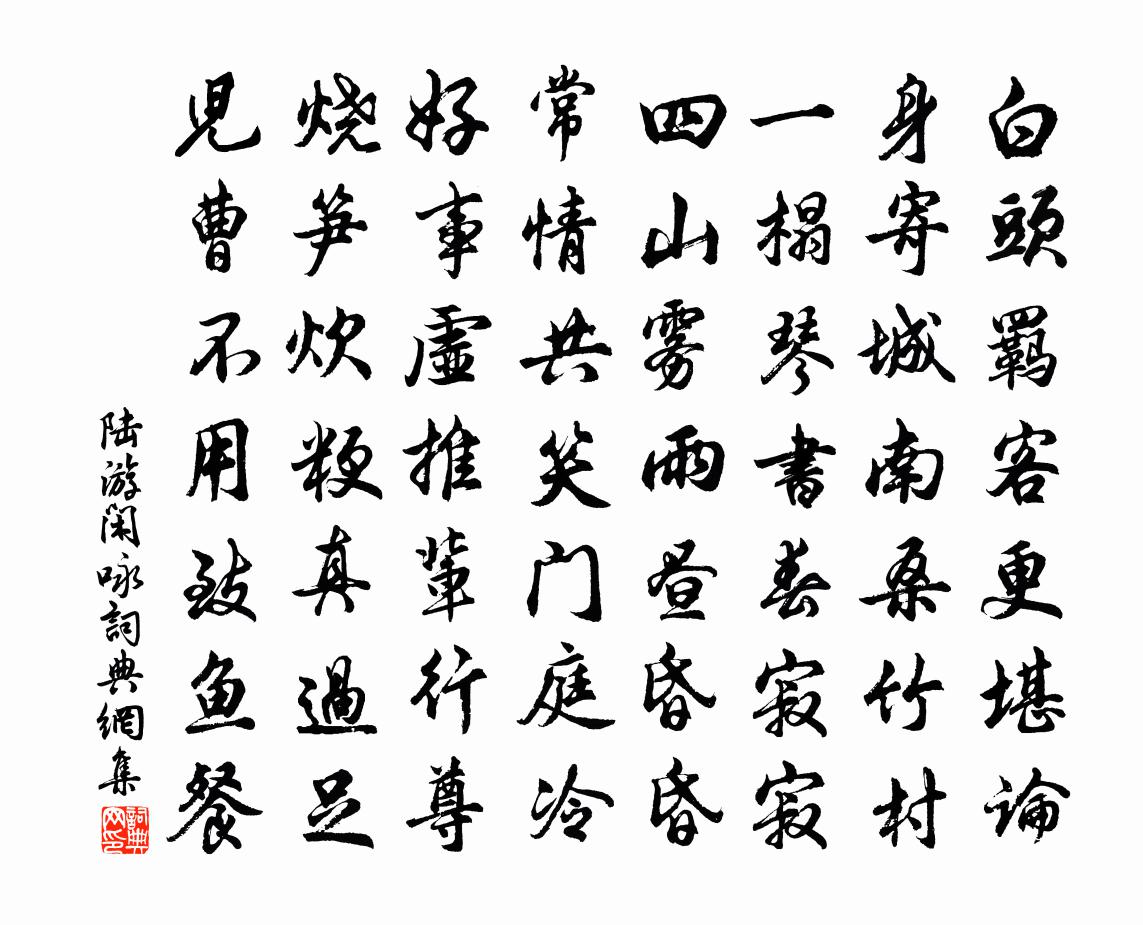 白頭羁客更堪論
身寄城南桑竹村
一榻琴書春寂寂
四山雾雨昼昏昏
常情共笑门庭冷
好事虛推輩行尊
烧笋炊粳真過足
児曹不用致鱼餐
陆游閑咏詞典網集
詞典网印